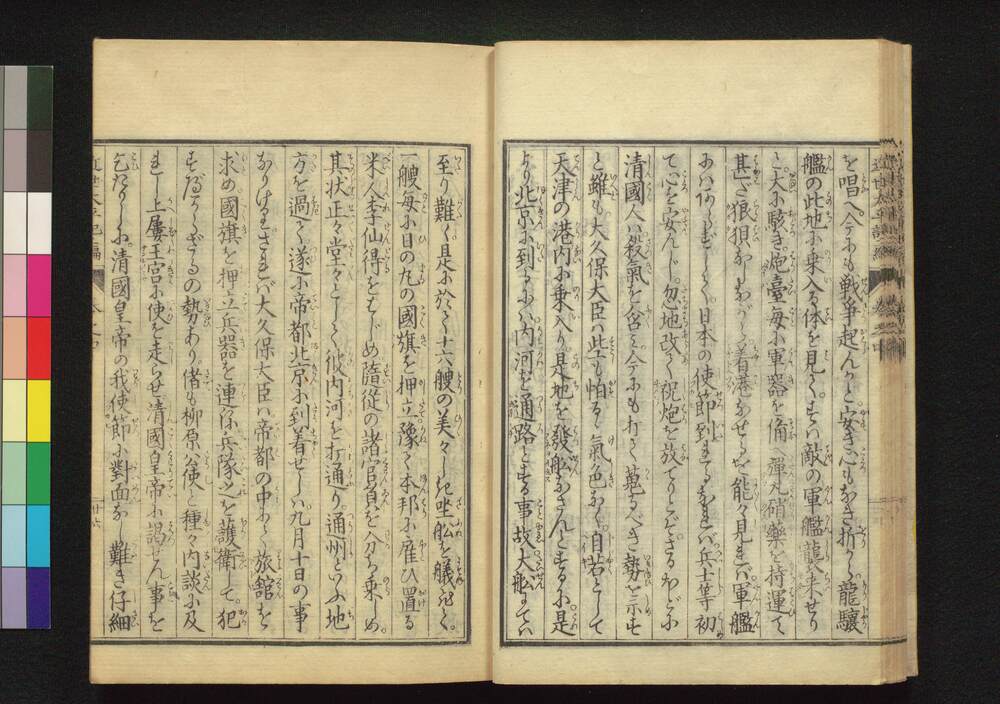 を唱へ今にも戦争起んかと安き心もなき折から龍驤
艦の此地に乗入る体を見てすは敵の軍艦龍来せり
と大に駭き炮臺毎に軍器を備へ彈丸硝薬を持運て
甚だ狼狽なしながら着港なせるを能々見れば軍艦
にはあらずして日本の使節到れるなれば兵士等初
て心を安んじ忽地改て祝炮を放てりとぞさるほどに
清國人は殺氣を含み今にも打て蒐るべき勢を示す
と雖も大久保大臣は些も怕るゝ氣色なく自若として
天津の港内に乗入り是地を發船なさんとするに是
より北京に到るには内河を通路とする事故大船にてい
至り難く是に於て十六艘の美々しき坐船を艤して
一艘毎に日の丸の國旗を押立豫て本邦に雇ひ置る
米人李仙得をはじめ隨從の諸官員を分ち乗しめ
其状正々堂々として彼内河を打通り通州といふ地
方を過て遂に帝都北京に到着せしは九月十日の事
なりけるされば大久保大臣は帝都の中にて旅舘を
求め國旗を押立兵器を連ね兵隊之を護衛して犯
すべからざるの勢あり偖も柳原公使と種々内談に及
れし上屢王宮に使を走らせ清國皇帝に謁せん事を
乞れしに清國皇帝の我使節に對面な 難き仔細